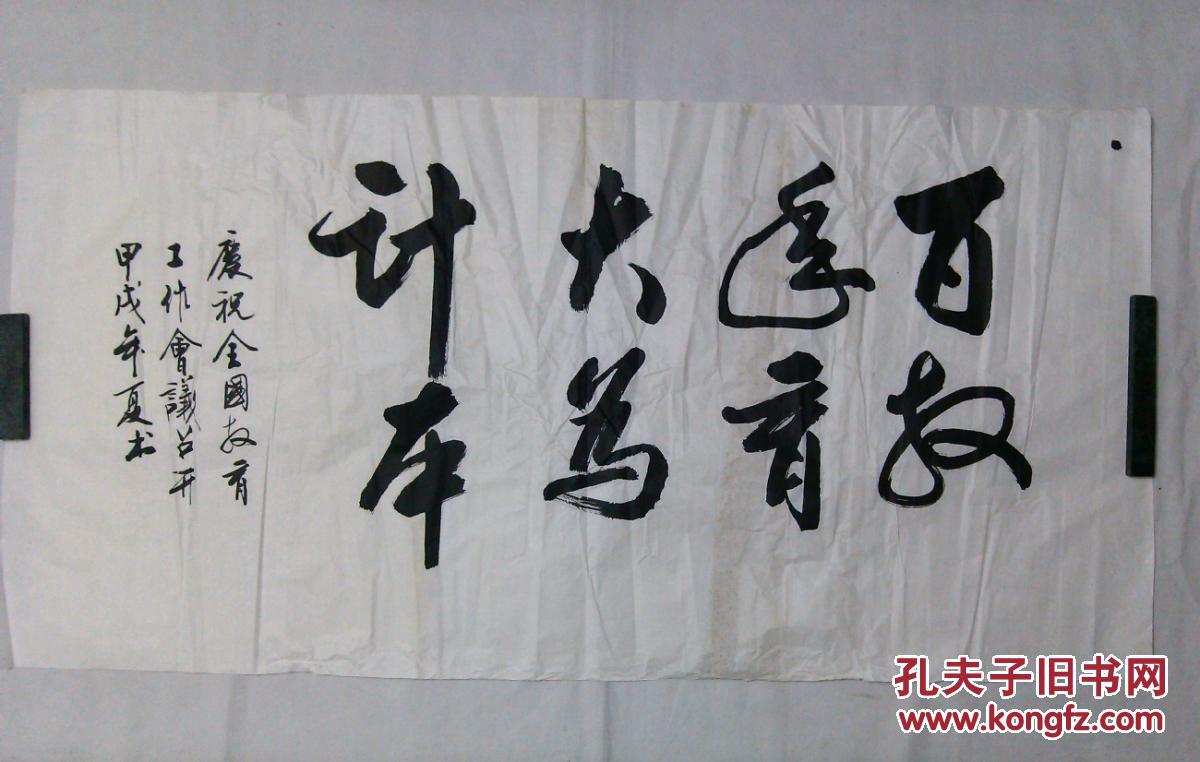 百年大计
教育为本
慶祝全國教育
工作會議召开
甲戌年夏书
孔夫子旧书网
www.kongfz.com